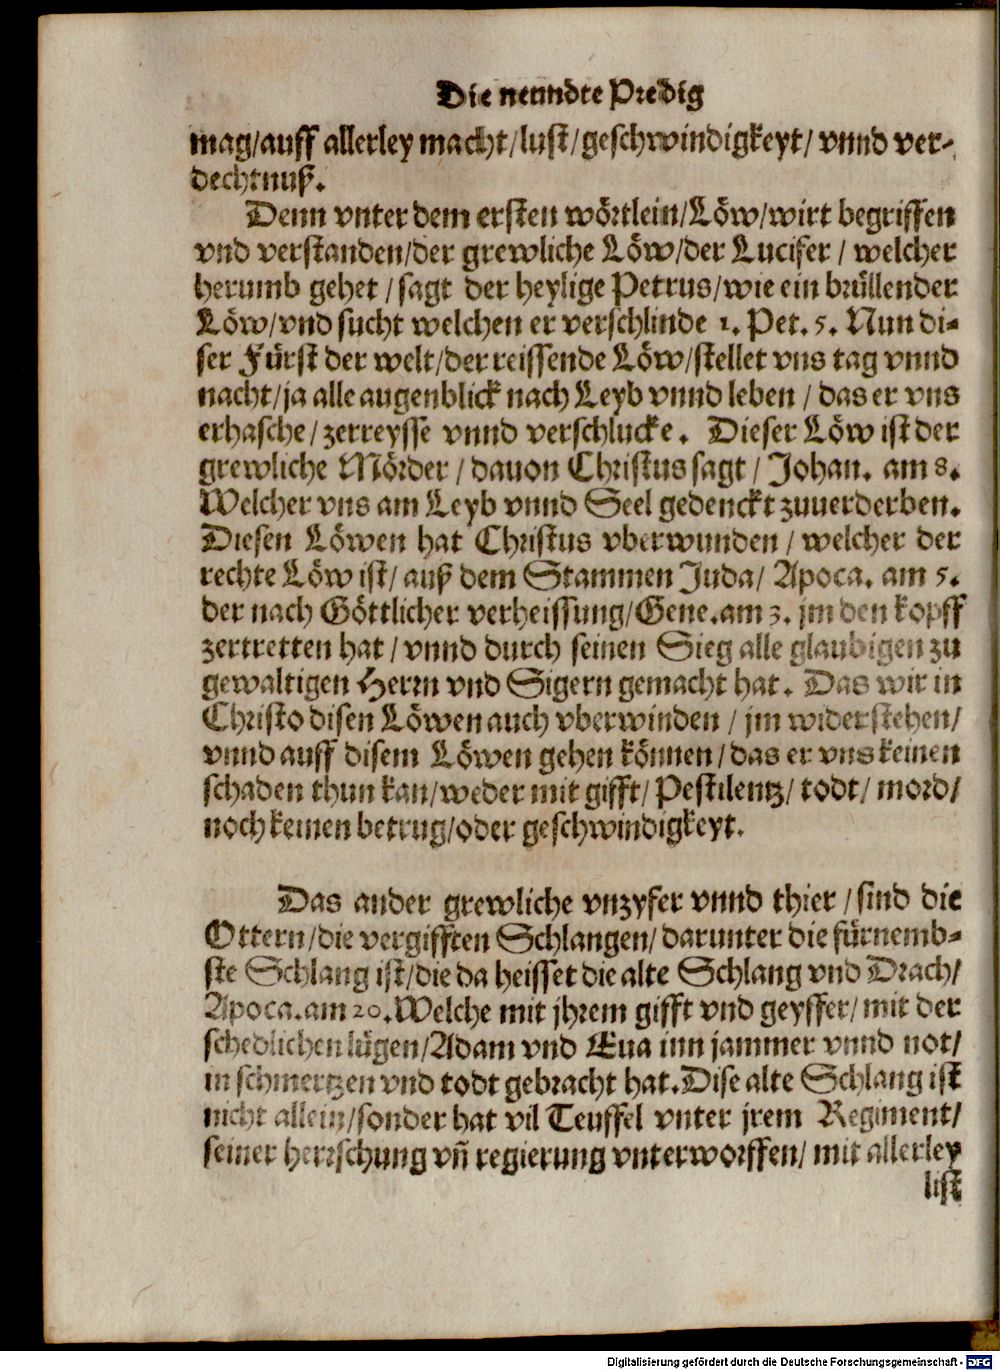 Die neundte Predig
mag/auff allerley macht/lust/geschwindigkeyt/vnnd ver-
dechtnuß.
Denn vnter dem ersten wörtlein/Löw/wirt begriffen
vnd verstanden/der grewliche Löw/der Lucifer / welcher
herumb gehet / sagt der heylige Petrus/wie ein brüllender
Löw/vnd sucht welchen er verschlinde 1. Pet. 5. Nun di-
ser Fürst der welt/der reissende Löw/stellet vns tag vnnd
nacht/ja alle augenblick nach Leyb vnnd leben / das er vns
erhasche / zerreysse vnnd verschlucke. Dieser Löw ist der
grewliche Mörder / dauon Christus sagt / Johan. am 8.
Welcher vns am Leyb vnnd Seel gedenckt zuuerderben.
Diesen Löwen hat Christus vberwunden / welcher der
rechte Löw ist/ auß dem Stammen Juda/ Apoca. am 5.
der nach Göttlicher verheissung/Gene.am 3. jm den kopff
zertretten hat / vnnd durch seinen Sieg alle glaubigen zu
gewaltigen Herrn vnd Sigern gemacht hat. Das wir in
Christo disen Löwen auch vberwinden / jm widerstehen/
vnnd auff disem Löwen gehen können / das er vns keinen
schaden thun kan/weder mit gifft/ Pestilentz/ todt/ mord/
noch keinen betrug/oder geschwindigkeyt.
Das ander grewliche vnzyfer vnnd thier / sind die
Ottern/die vergifften Schlangen/ darunter die fürnemb-
ste Schlang ist/die da heisset die alte Schlang vnd Drach/
Apoca.am 20.Welche mit jhrem gifft vnd geyffer/ mit der
schedlichen lügen/Adam vnd Eua inn jammer vnnd not/
in schmertzen vnd todt gebracht hat.Dise alte Schlang ist
nicht allein/sonder hat vil Teuffel vnter jrem Regiment/
seiner herrschung vñ regierung vnterworffen/ mit allerley
list
Digitalisierung gefördert durch die Deutsche Forschungsgemeinschaft - DFG